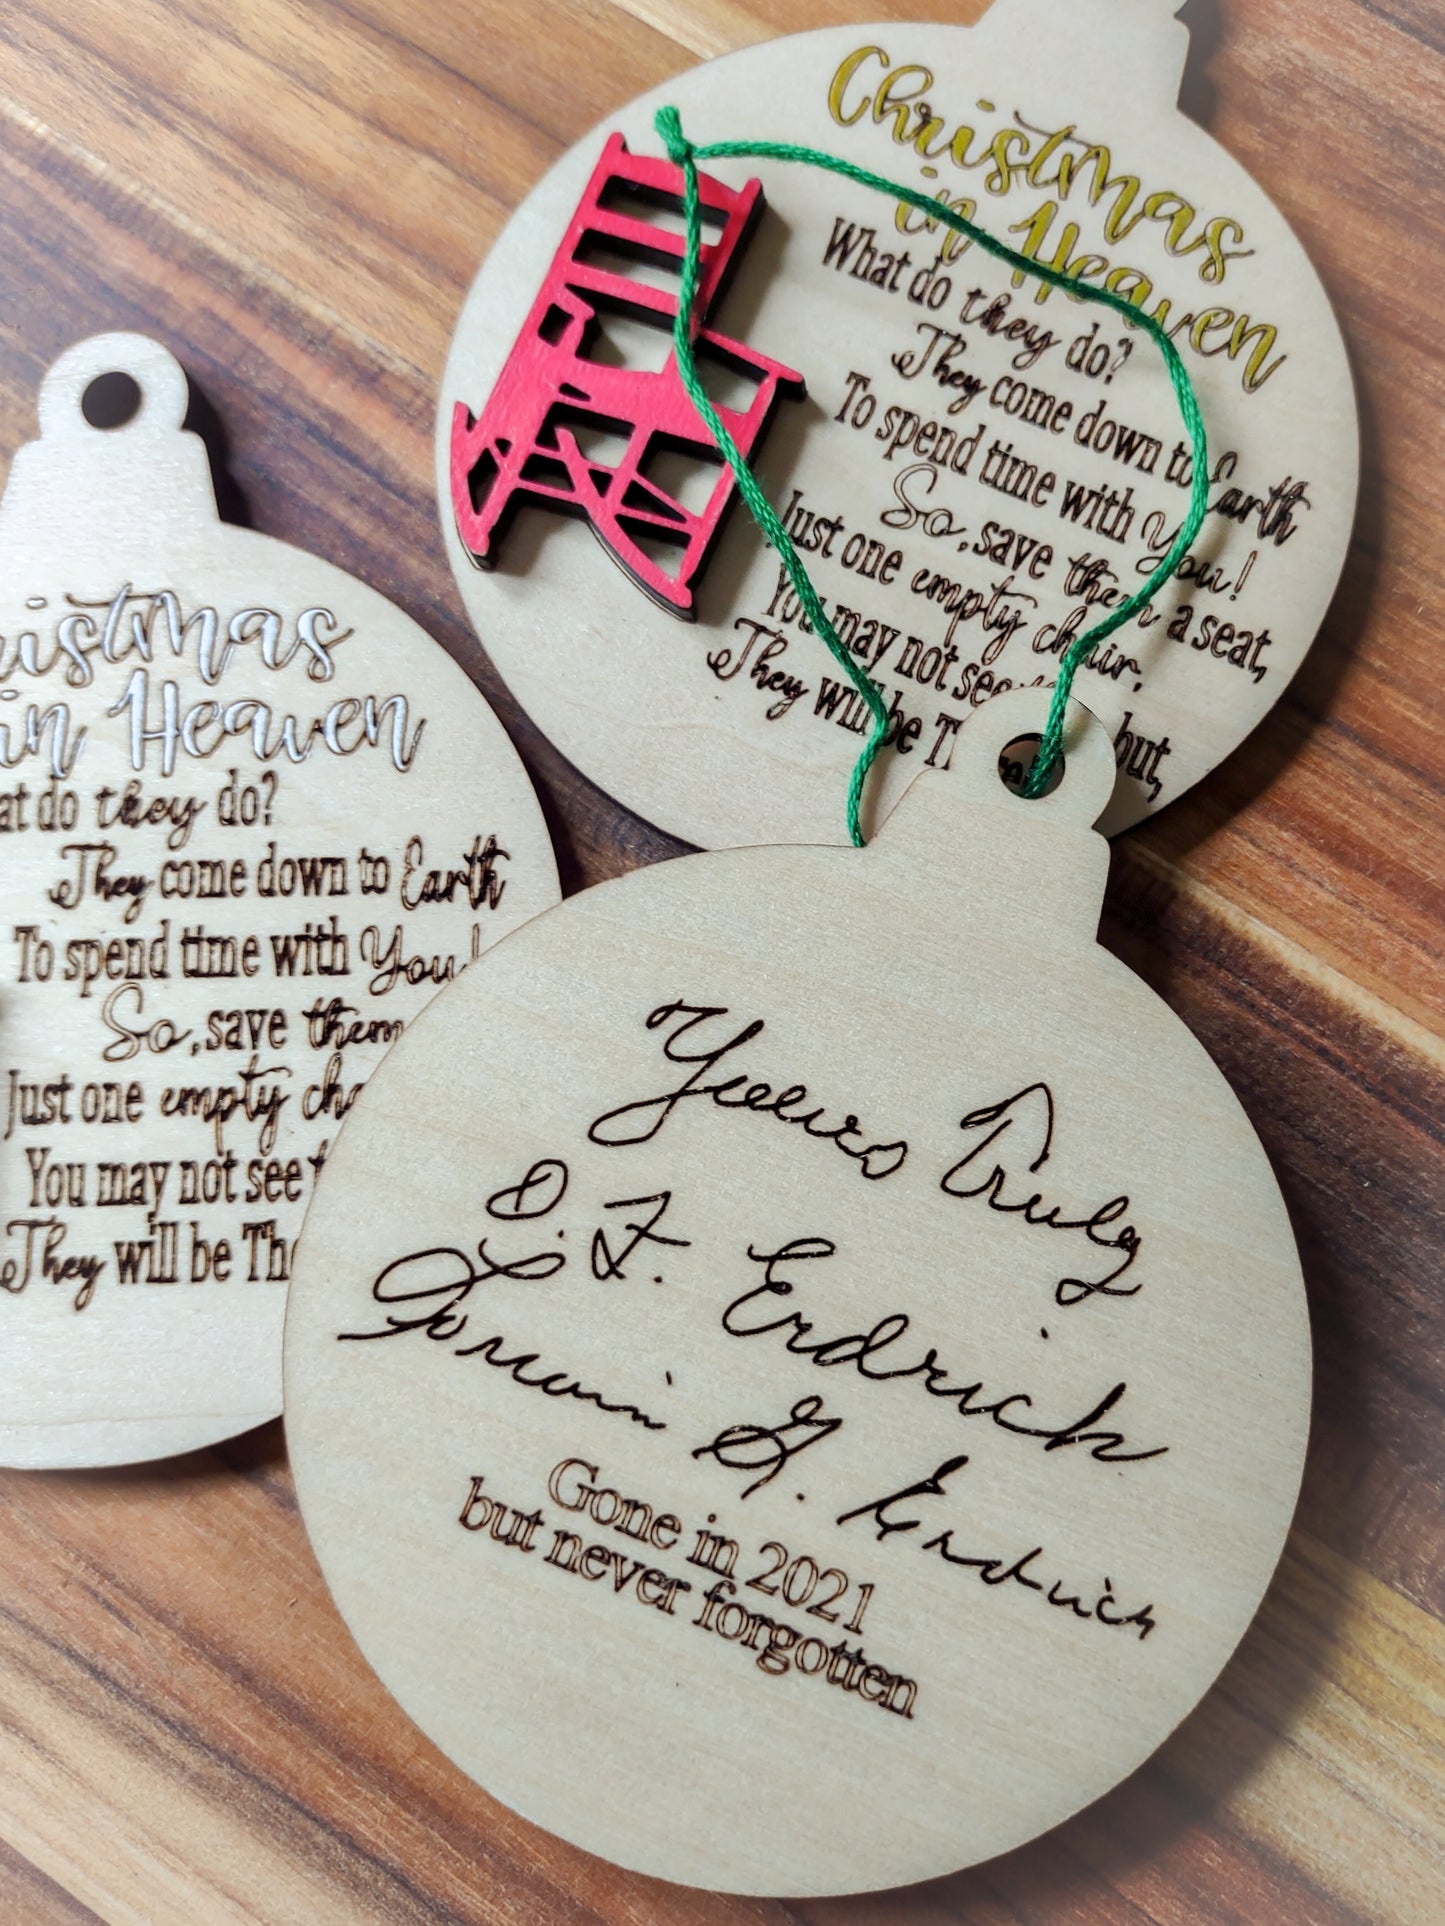 Christmas
in Heaven
What do they do?
They come down to Earth
To spend time with You!
So, save them a seat,
Just one empty chair,
You may not see but,
They will be
in Heaven
do they do?
They come down to Earth
To spend time with You!
So, save them
Just one empty
You may not see
They will be
Yours Truly
D. F. Erdrich
G. Erdrich
Gone in 2021
but never forgotten